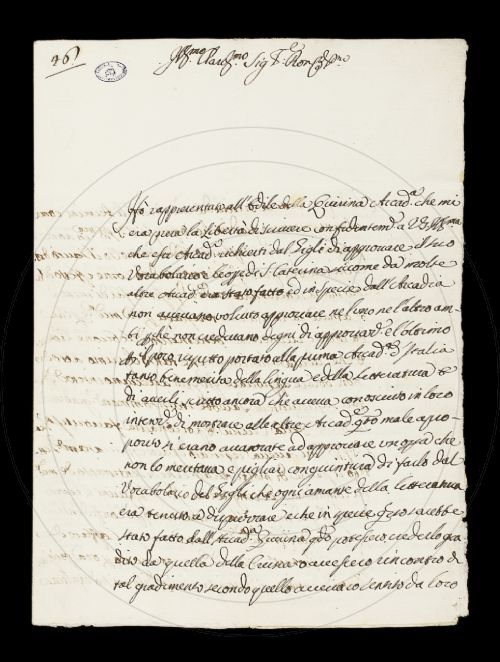 46)
Ill.mo Clariss.mo Sig.r
Hò rappresentato all' Edile della Quirina Accad.a che mi
era presa la libertà di scrivere confidentem.te a VS Ill.ma
che essi Accad.i richiesti dal Gigli di approvare il suo
Vocabolario e leggi di S. Caterina siccome da molte
altre Accad.e era stato fatto ed in specie dall' Arcadia
non avevano voluto approvare ne l'uno ne l'altro am-
bi p.chè non credevano degni di approvarsi e l'ultimo
rispetto portato alla prima Accad.a d'Italia
tanto benemerita della lingua e della Letteratura e
di averli scritto ancora che aveva conosciuto in loro
intenz.e di mostrare alle altre Accad.e q.to male a pro-
posito si erano avanzate ad approvare un opera che
non lo meritava e pigliare congiuntura di farlo dal
Vocabolario del Gigli che ogni amante della letteratura
era tenuto a disprezzare e che in specie q.to sarebbe
stato fatto dall' Accad.a Quirina q.do potessero credere lo gra-
dito da quella della Crusca o avessero rincontro di
tal gradimento secondo quello aveva io sentito da loro